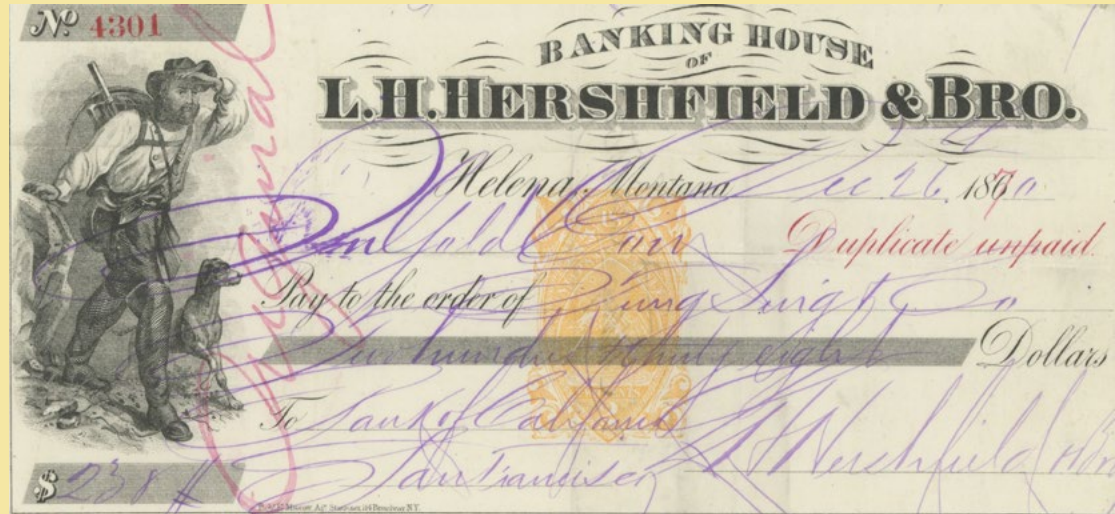 Nº 4301
Original
BANKING HOUSE
OF
L.H. HERSHFIELD & BRO.
Helena, Montana Dec 26 1870
In Gold Coin
Duplicate unpaid.
Pay to the order of
Two hundred thirty eight Dollars
To Bank of California
San Francisco
L H Hershfield & Bro
$ 238